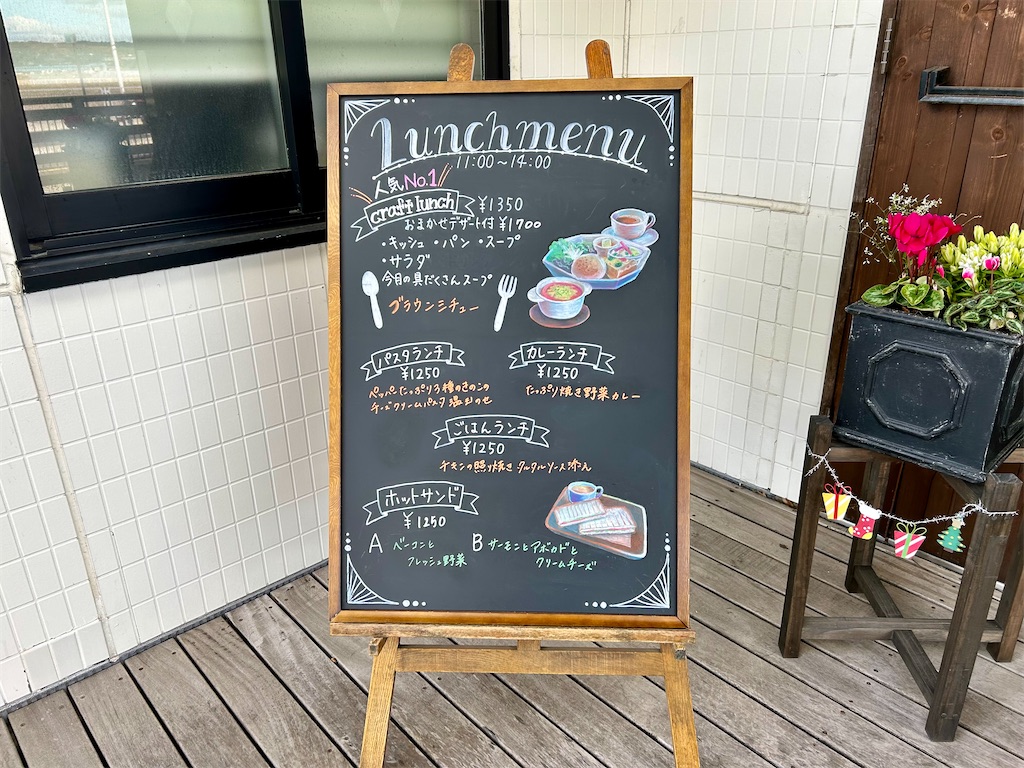 Lunchmenu
11:00〜14:00
人気No.1
craft lunch ¥1350
おまかせデザート付 ¥1700
・キッシュ ・パン ・スープ
・サラダ
今月の具だくさんスープ
ブラウンシチュー
パスタランチ
¥1250
ペッパーたっぷり3種のきのこの
チーズクリームパスタ 温玉のせ
カレーランチ
¥1250
たっぷり焼き野菜カレー
ごはんランチ
¥1250
チキンの照り焼き タルタルソース添え
ホットサンド
¥1250
A ベーコンと
フレッシュ野菜
B サーモンとアボカドと
クリームチーズ